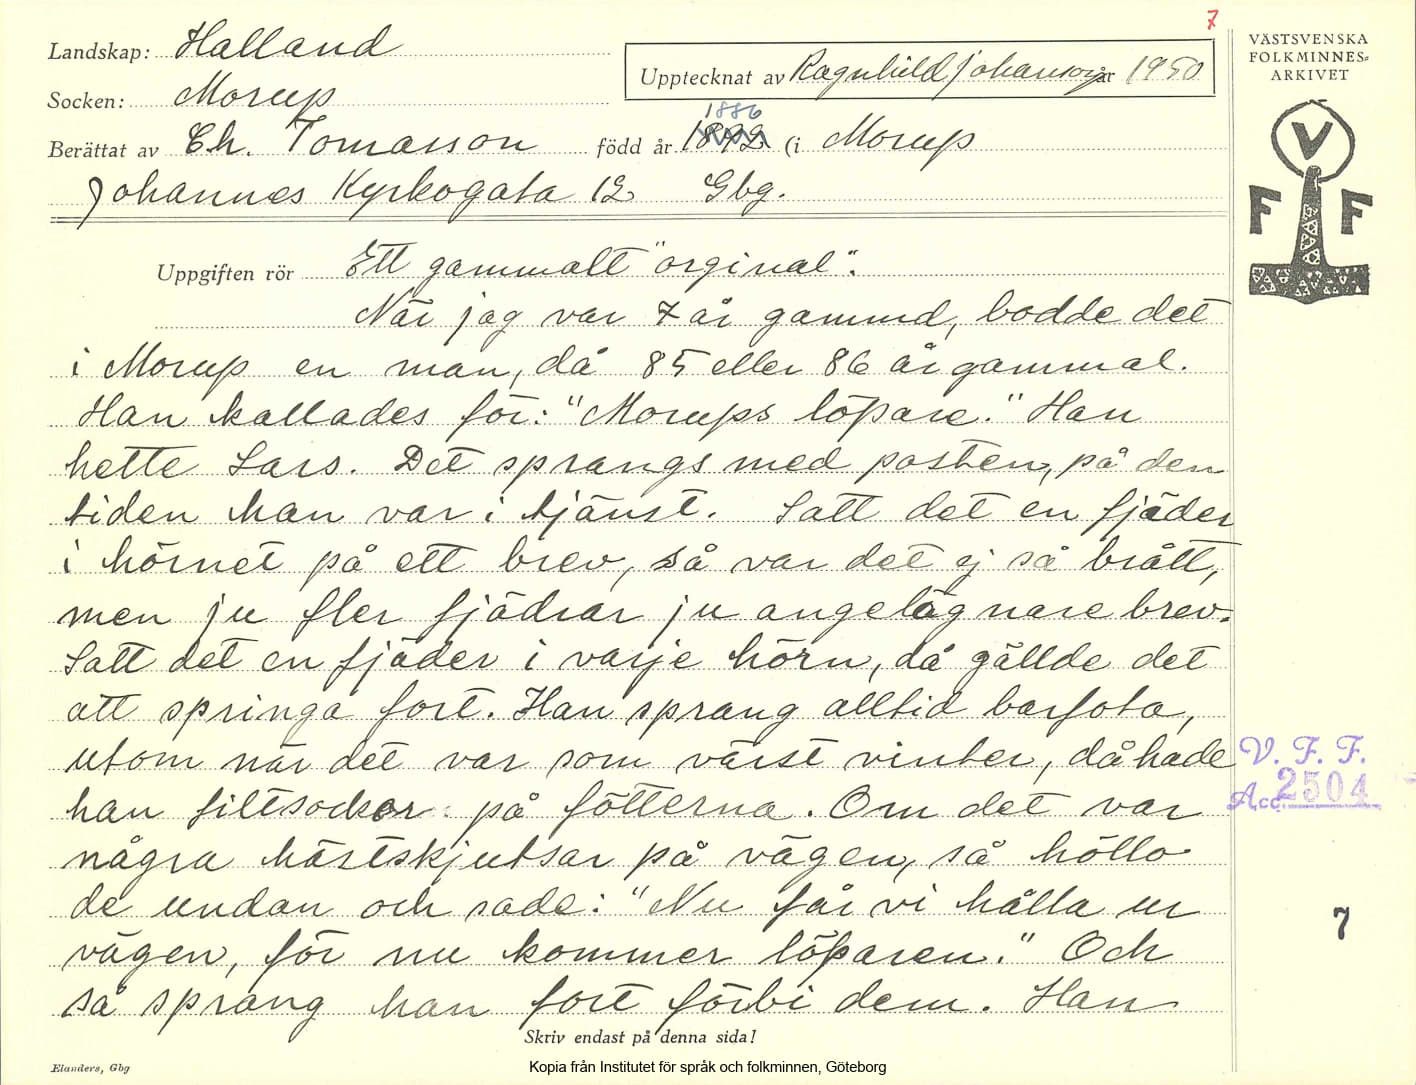 7
Landskap: Halland
Upptecknat av Ragnhild Johansson år 1950
Socken: Morup
1886
Berättat av Ch. Tomasson född år 1892 (i Morup
Johannes Kyrkogata 12 Gbg.
VÄSTSVENSKA
FOLKMINNES=
ARKIVET
V
F F
Uppgiften rör Ett gammalt "orginal".
När jag var 7 år gammal, bodde det
i Morup en man, då 85 eller 86 år gammal.
Han kallades för: "Morups löpare." Han
hette Lars. Det sprangs med posten, på den
tiden han var i tjänst. Satt det en fjäder
i hörnet på ett brev, så var det ej så brått,
men ju fler fjädrar ju angelägnare brev.
Satt det en fjäder i varje hörn, då gällde det
att springa fort. Han sprang alltid barfota,
utom när det var som värst vinter, då hade
han filtsockor på fötterna. Om det var
några hästskjutsar på vägen, så höllo
de undan och sade: "Nu får vi hålla ur
vägen, för nu kommer löparen." Och
så sprang han fort förbi dem. Han
V. F. F.
Acc. 2504
7
Skriv endast på denna sida!
Elanders, Gbg
Kopia från Institutet för språk och folkminnen, Göteborg